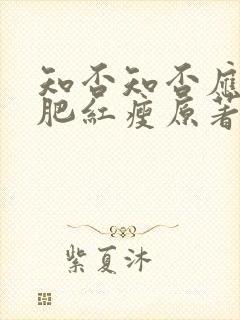 知否知否應
肥紅瘦原著
紫夏沐